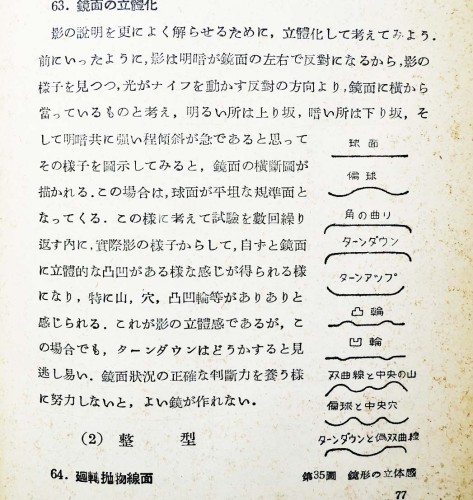 63. 鏡面の立體化
影の說明を更によく解らせるために，立體化して考えてみよう．
前にいったように，影は明暗が鏡面の左右で反對になるから，影の
樣子を見つつ，光がナイフを動かす反對の方向より，鏡面に橫から
當っているものと考え，明るい所は上り坂，暗い所は下り坂，そ
して明暗共に强い程傾斜が急であると思って
その樣子を圖示してみると，鏡面の橫斷圖が
描かれる．この場合は，球面が平坦な規準面と
なってくる．この樣に考えて試驗を數回繰り
返す內に，實際影の樣子からして，自ずと鏡面
に立體的な凸凹がある樣な感じが得られる樣
になり，特に山，穴，凸凹輪等がありありと
感じられる．これが影の立體感であるが，こ
の場合でも，ターンダウンはどうかすると見
逃し易い．鏡面狀況の正確な判斷力を養う樣
に努力しないと，よい鏡が作れない．
球面
偏球
角の曲り
ターンダウン
ターンアップ
凸輪
凹輪
双曲線と中央の山
偏球と中央穴
ターンダウンと偽双曲線
第35圖 鏡形の立体感
(2) 整型
64. 廻轉抛物線面
77